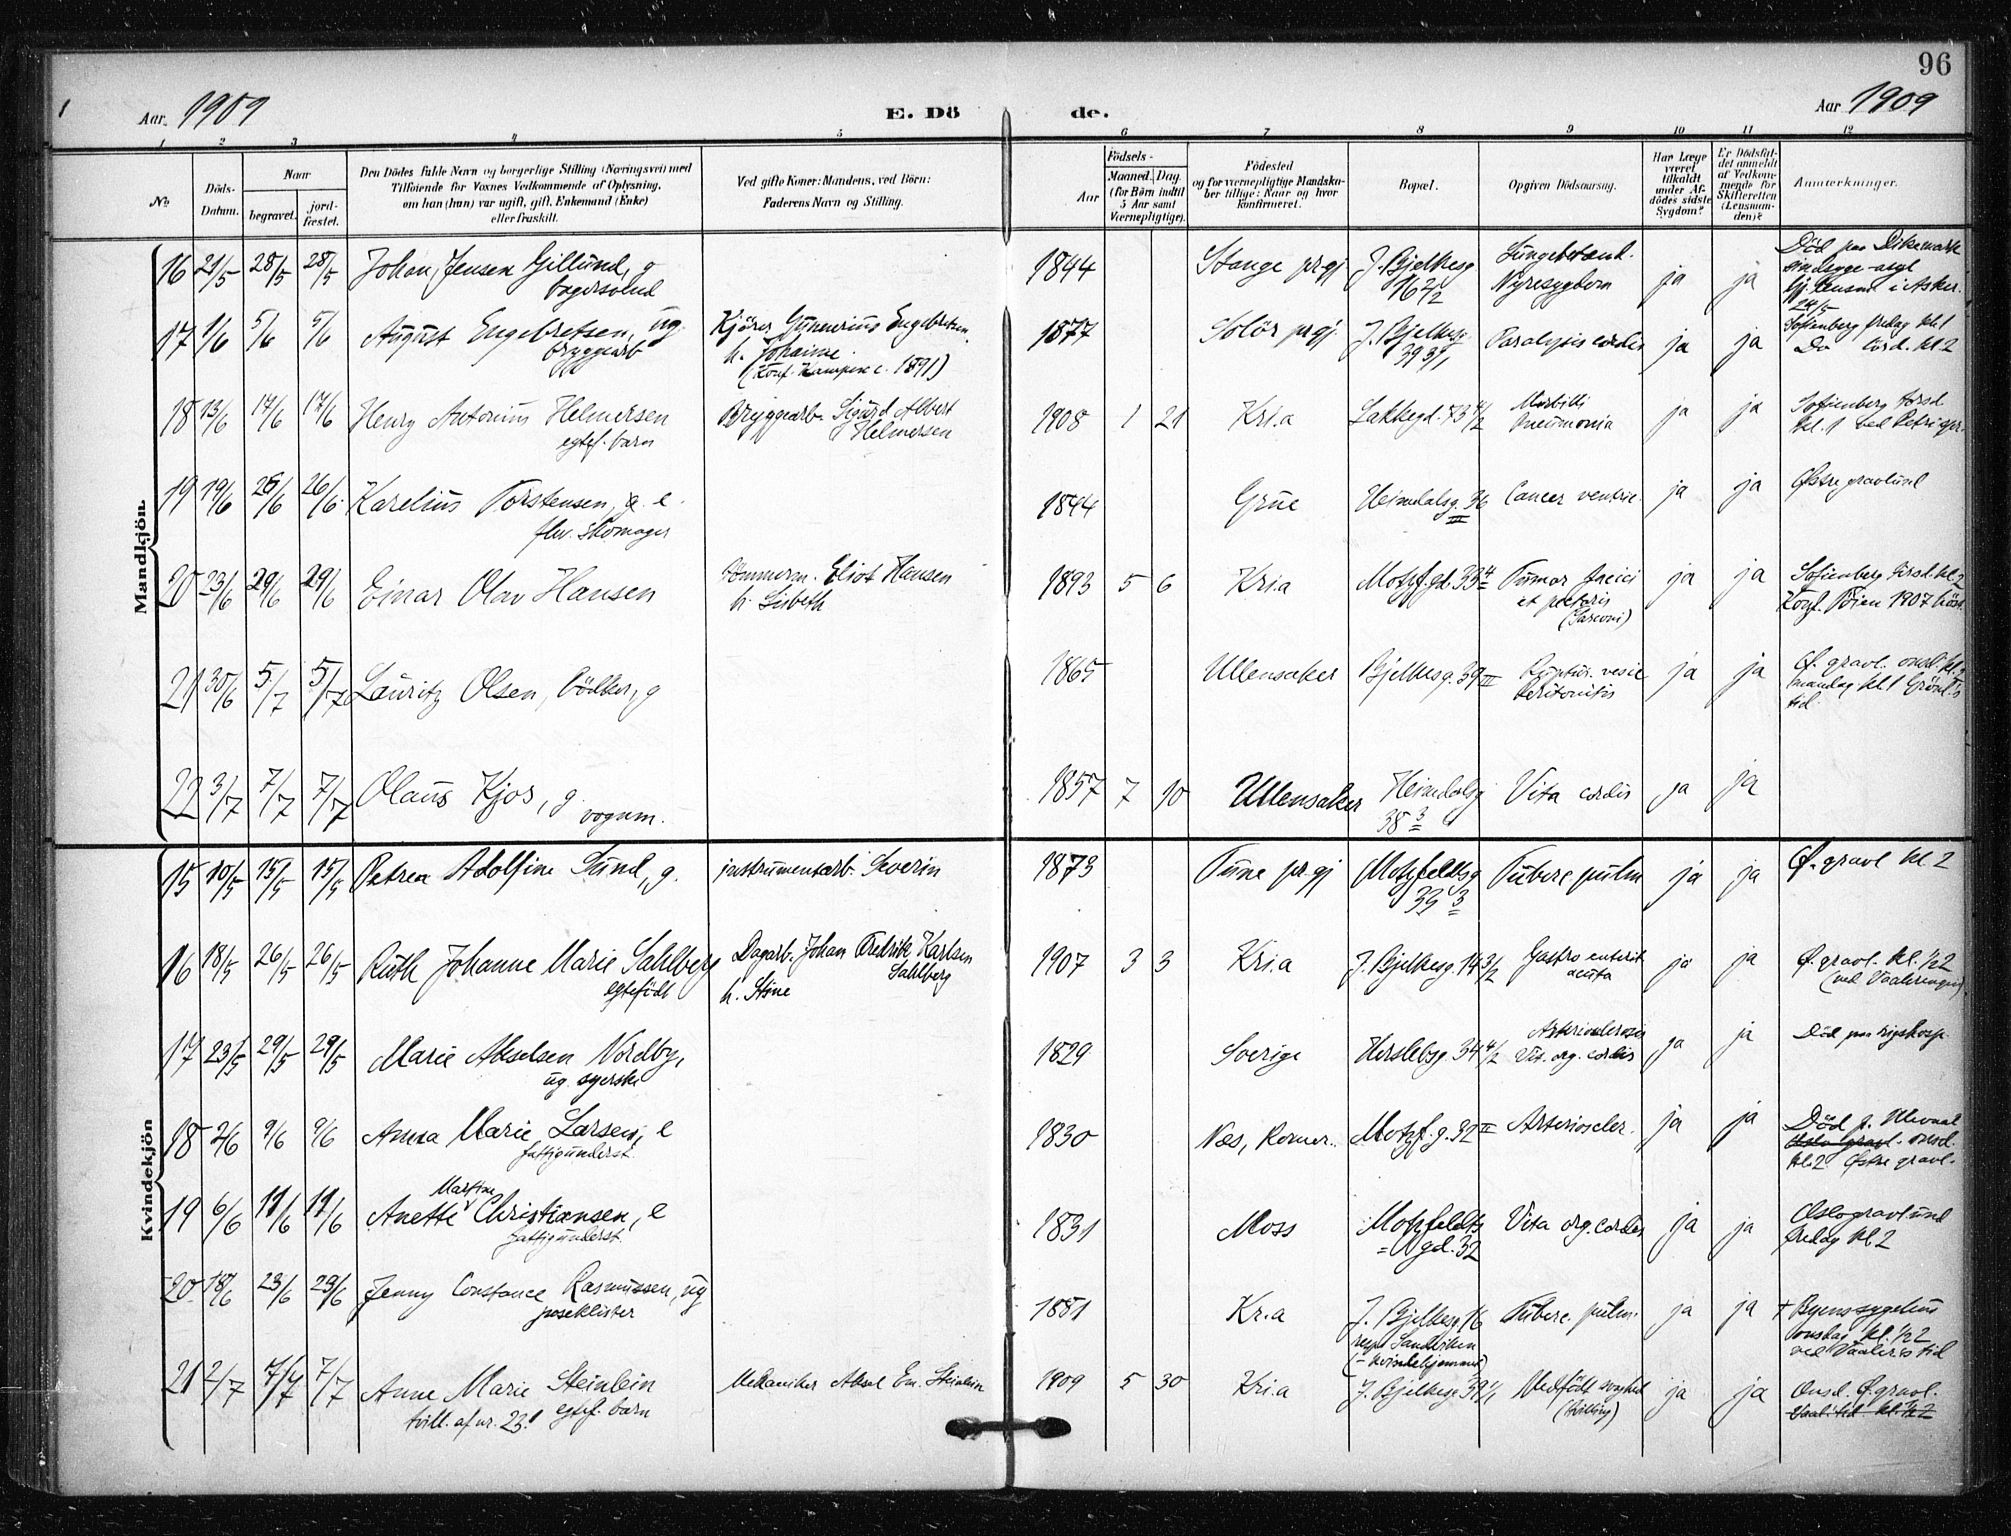 96
Aar 1909
E. Dö
de.
Aar 1909
1 2 3 4 5 6 7 8 9 10 11 12
No.
Döds-
Datum.
Naar
begravet.
jord-
fæstet.
Den Dödes fulde Navn og borgerlige Stilling (Næringsvei) med
Tilföiende för Voxnes Vedkommende af Oplysning,
om han (hun) var ugift, gift, Enkemand (Enke)
eller fraskilt.
Ved gifte Koner: Mandens, ved Börn:
Faderens Navn og Stilling.
Födsels-
Aar
Maaned. Dag
(for Börn indtil
5 Aar samt
Værnepligtige).
Födested
og for værnepligtige Mandska-
ber tillige: Naar og hvor
konfirmeret.
Bopæl.
Opgiven Dödsaarsag.
Har Læge
været
tilkaldt
under Af-
dödes sidste
Sygdom?
Er Dödsfal-
det anmeldt
af Vedkom-
mende for
Skifteretten
(Lensman-
den)?
Anmærkninger.
Mandkjön.
16 21/5 28/5 28/5 Johan Jensen Gillund, g
bagersvend
1844 Stange prgj J. Bjelkesg
16 2/2
Nyresygdom
ja ja Död paa Dikemark
sindsyge-asyl
i Asker.
24/5
17 1/6 5/6 5/6 August Engebretsen, ug.
bryggearb
Kjörer Gunnerius Engebretsen
h. Johanne
(Konf. Kampen c. 1891)
1877 Solör prgj. J. Bjelkesg.
39 3/1
Paralysis cordis ja ja Sofienberg fredag kl 1
Do lörd. kl 2
18 13/6 17/6 17/6 Henry Antonius Helmersen
egtef. barn
Bryggearb. Sigurd Albert
Helmersen
1908 1 21 Kri.a Lakkegd. 73 4/2 Morbilli
pneumonia
ja ja Sofienberg torsd.
kl. 1 ved Petri spr.
19 19/6 26/6 26/6 Karelius Torstensen, e.
skomager
1844 Grue Heimdalsg. 36
III
Cancer ventric. ja ja Østre gravlund
20 23/6 29/6 29/6 Einar Olav Hansen
Tömmerm. Eliot Hansen
h. Lisbeth
1893 5 6 Kri.a Motzf.gd. 33 4 Tumor faciei
et pectoris
ja ja Sofienberg tirsd. kl. 2
Konf. Töien 1907 höst
21 30/6 5/7 5/7 Lauritz Olsen, bödker, g
1865 Ullensaker Bjelkesg. 39 III Ruptur. vesic
Peritonitis
ja ja Ø. gravl. onsd. kl. 2
mandag kl 1 Grönl.s
tid
22 3/7 7/7 7/7 Olaus Kjos, g
vognm.
1857 7 10 Ullensaker Heimdalsg
38 3
Vita cordis ja ja
Kvindekjön
15 10/5 15/5 15/5 Petrea Adolfine Lund, g.
instrumentarb. Severin
1873 Tune prgj Motzfeldtsg
33 3
Tuberc pulm ja ja Ø. gravl kl 2
16 18/5 26/5 26/5 Ruth Johanne Marie Sahlberg
egtefödt
Dagarb. Johan Fredrik Karlsen
Sahlberg
h. Stine
1907 3 3 Kri.a J. Bjelkesg. 14 3/2 Gastro enterit
acuta
ja ja Ø. gravl. kl. 1/2 2
(ved Vaalerengen).
17 23/5 29/5 29/5 Marie Akselsen Nordby,
ug. syerske
1829 Sverige Herslebsg. 34 4/2 Arteriosclerosis
Vit. org. cordis
ja ja Död paa rigshosp.
18 2/6 9/6 9/6 Anna Marie Larsen, e
fattigunderst.
1830 Næs, Romer. Motzf.g. 32 II Arterioscler. ja ja Död p. Ulevaal
Oslo gravl. onsd.
kl. 2 Østre gravl.
19 6/6 11/6 11/6 Martine
Anette Christiansen, e
fattigunderst.
1831 Moss Motzfeldts
gd. 32
Vita org. cordis ja ja Oslo gravlund
fredag kl 2
20 18/6 23/6 23/6 Jenny Constance Rasmussen, ug
poseklister
1881 Kr.a J. Bjelkesg. 16
Sandviken
Tuberc. pulm. ja ja + Byens sygehus
onsdag kl. 1/2 2
ved Vaaler.s tid
21 2/7 7/7 7/7 Anne Marie Steinlein
tvill. af nr. 23! egtef. barn
Mekaniker Aksel Em. Steinlein
1909 5 30 Kri.a J. Bjelkesg. 39 1/1 Medfödt svaghed
(tvilling)
ja ja Onsd. Ø. gravl.
Vaal. tid. kl. 1/2 2